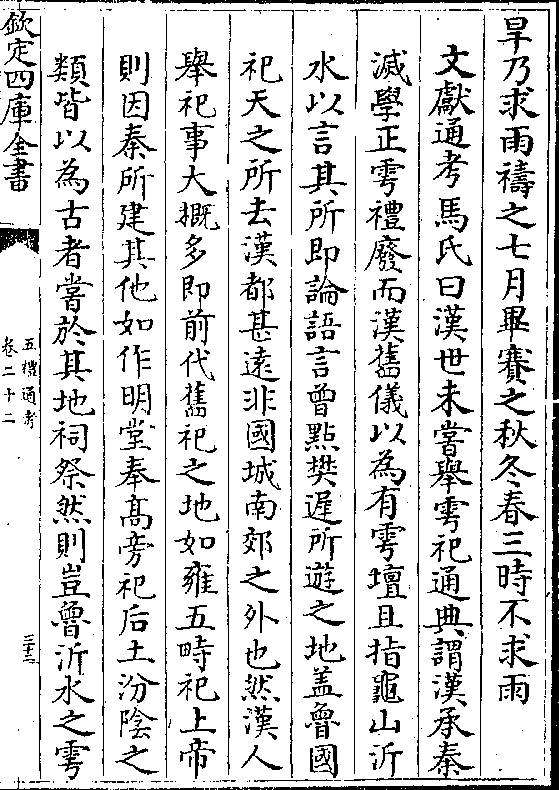 旱乃求雨禱之七月畢賽之秋冬春三時不求雨
文獻通考馬氏曰漢世未嘗舉雩祀通典謂漢承秦
滅學正雩禮廢而漢舊儀以為有雩壇且指龜山沂
水以言其所即論語言曾點樊遲所遊之地盖魯國
祀天之所去漢都甚逺非國城南郊之外也然漢人
舉祀事大概多即前代舊祀之地如雍五畤祀上帝
則因秦所建其他如作明堂奉髙旁祀后土汾隂之
類皆以為古者嘗於其地祠祭然則豈魯沂水之雩
欽定四庫全書
五禮通考
卷二十二
三十三